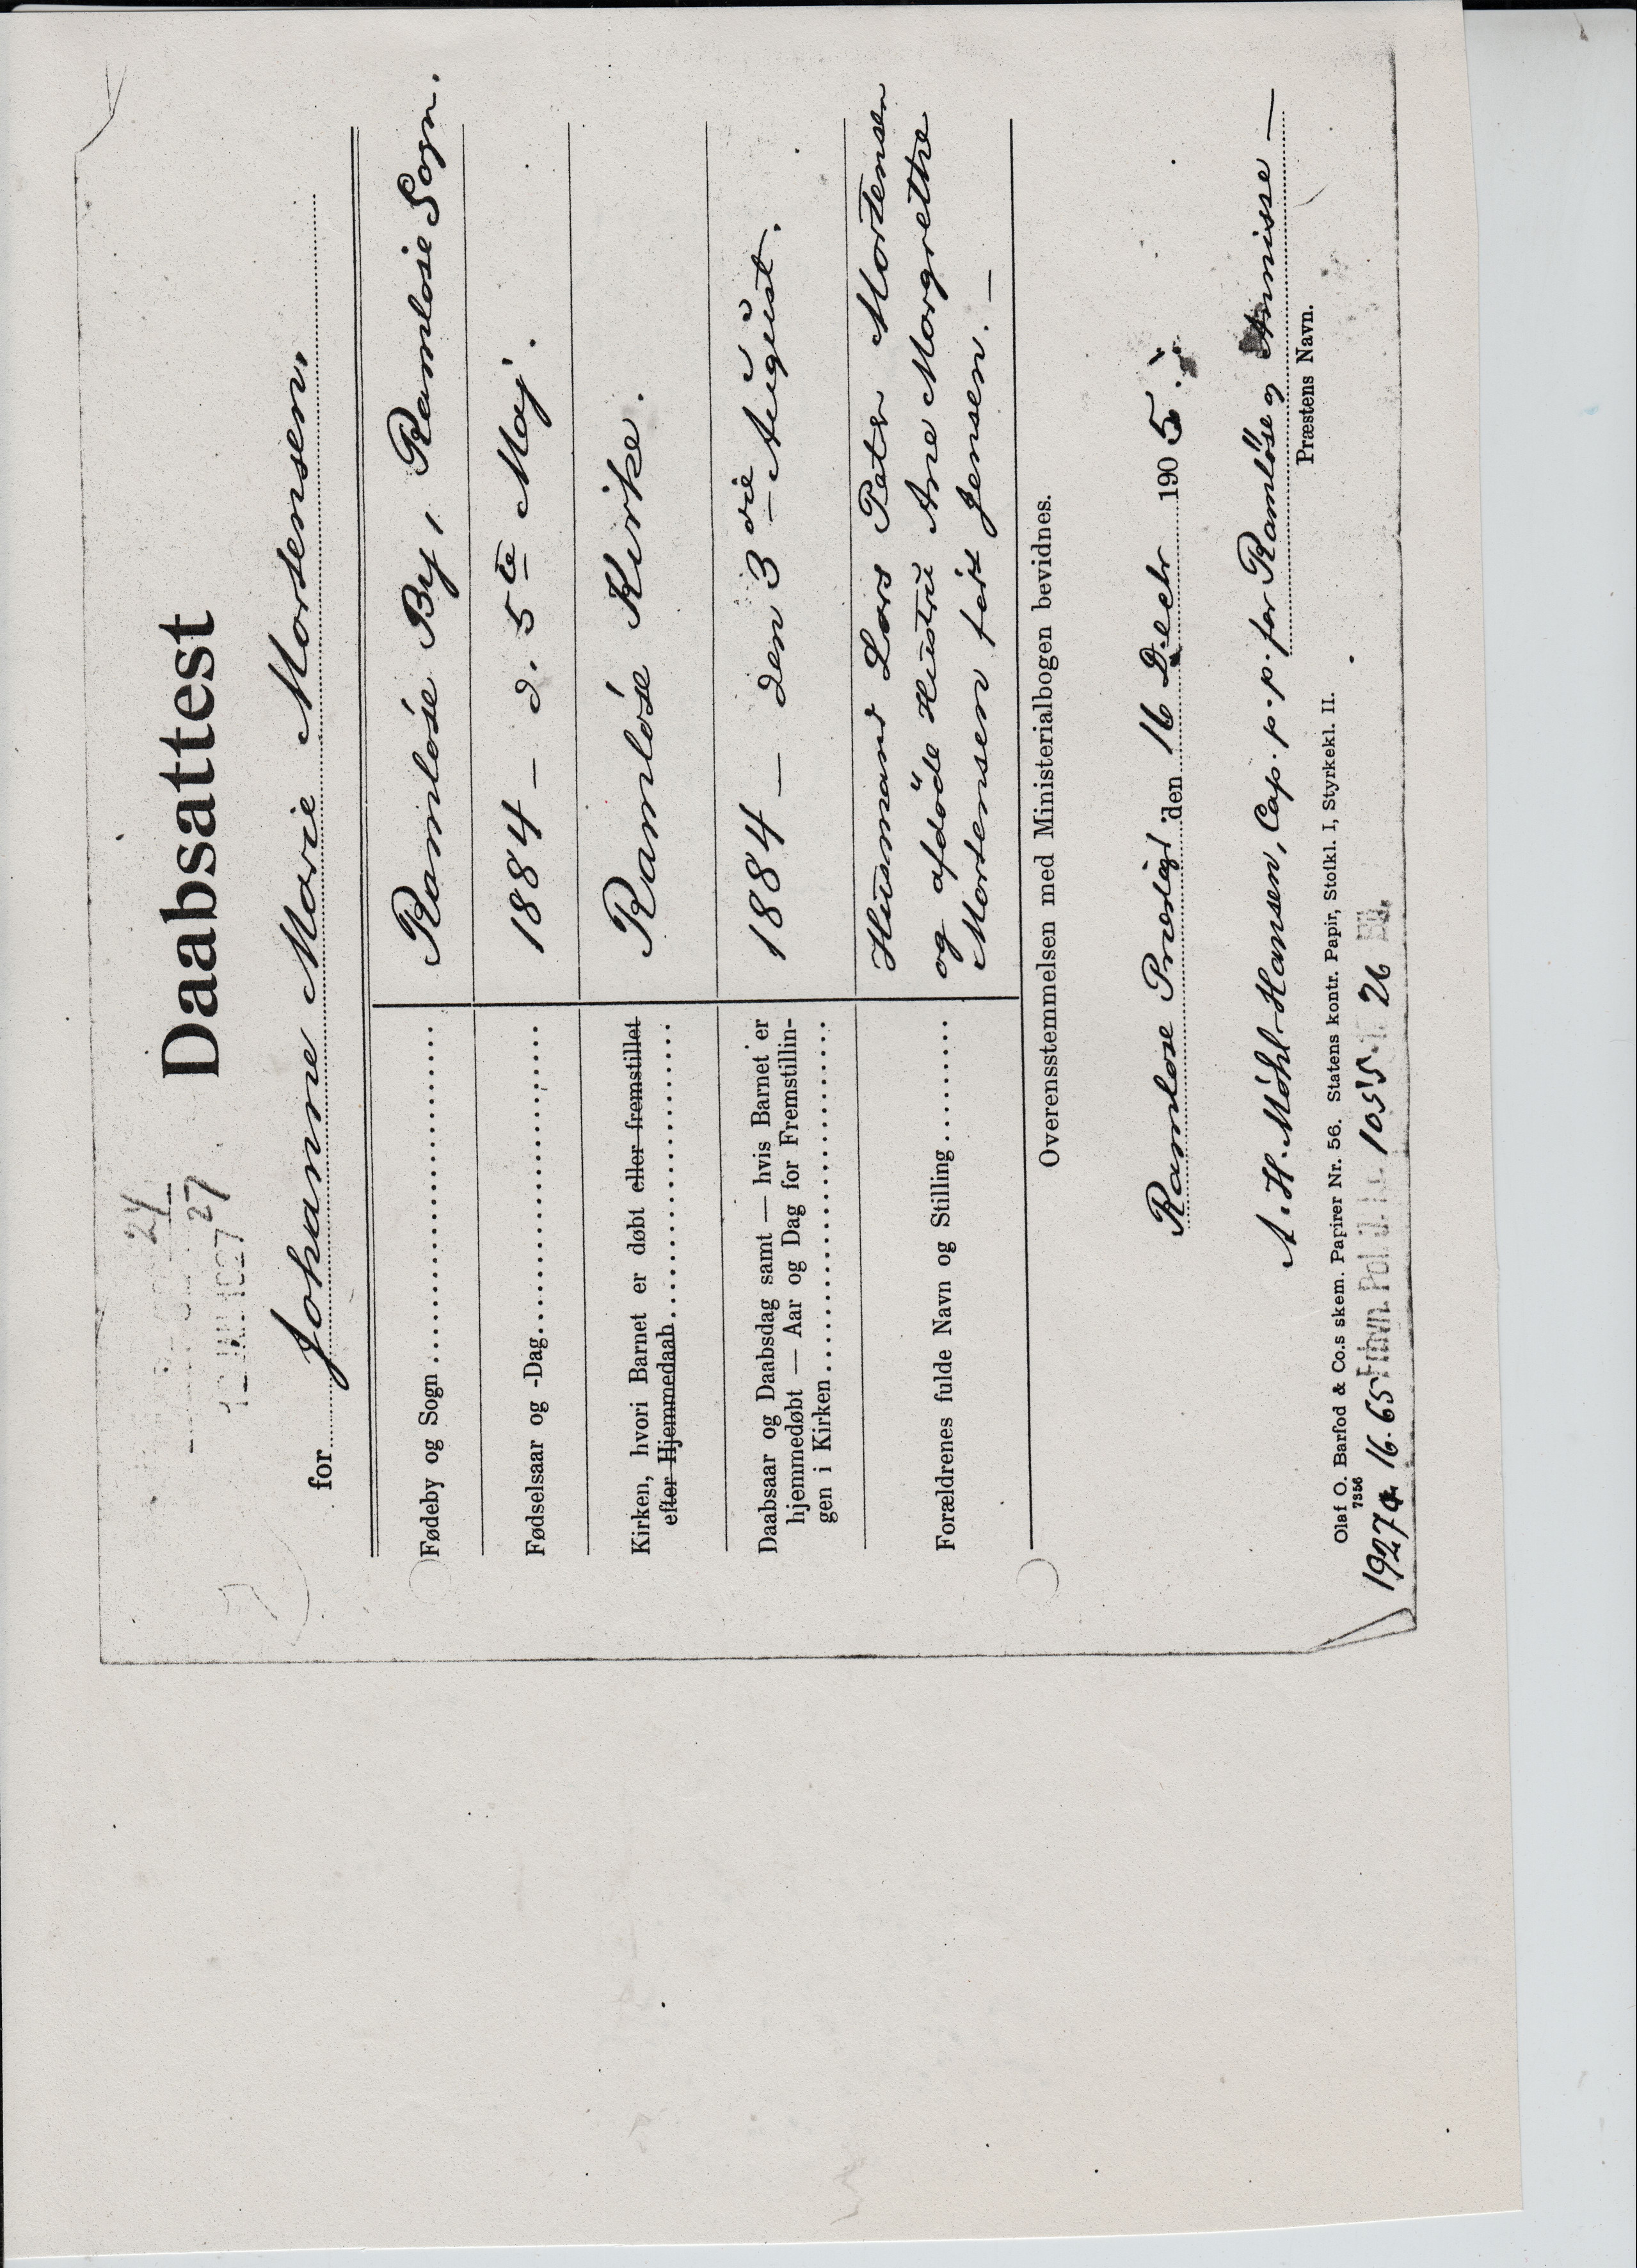 24
27
Daabsattest
for Johanne Marie Mortensen.
Fødeby og Sogn Ramløse By, Ramløse Sogn.
Fødselsaar og -Dag 1884 – d. 5te Maj.
Kirken, hvori Barnet er døbt eller fremstillet
efter Hjemmedaab Ramløse Kirke.
Daabsaar og Daabsdag samt — hvis Barnet er
hjemmedøbt — Aar og Dag for Fremstillin-
gen i Kirken 1884 – den 3die August.
Forældrenes fulde Navn og Stilling Husmand Lars Peter Mortensen
og afdøde Hustru Ane Margrethe
Mortensen født Jensen. –
Overensstemmelsen med Ministerialbogen bevidnes.
Ramløse Præstegd den 16 Decbr 1905.
A. H. Møhl-Hansen, Cap. p. p. for Ramløse og Annisse –
Præstens Navn.
Olaf O. Barfod & Co.s skem. Papirer Nr. 56. Statens kontr. Papir, Stofkl. I, Styrkekl. II.
7356
16.65 1055 26